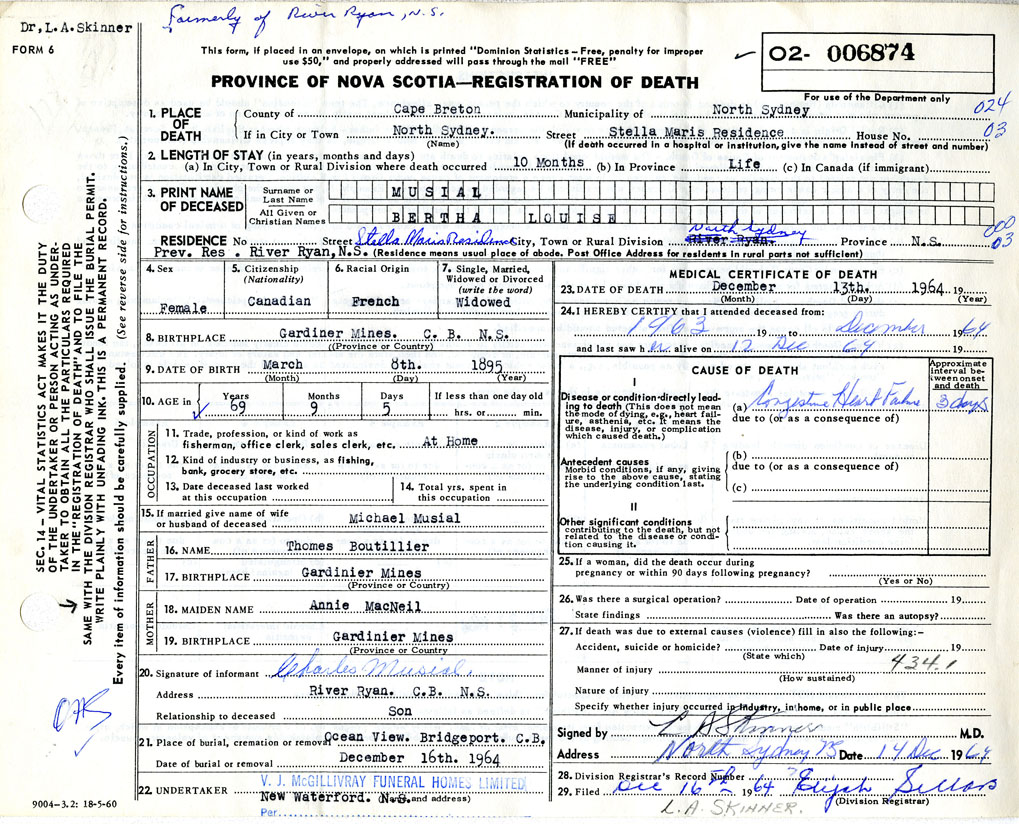 Formerly of River Ryan, N.S.
Dr, L.A.Skinner
FORM 6
This form, if placed in an envelope, on which is printed "Dominion Statistics – Free, penalty for improper
use $50," and properly addressed will pass through the mail "FREE"
PROVINCE OF NOVA SCOTIA—REGISTRATION OF DEATH
02- 006874
For use of the Department only
024
03
1. PLACE OF DEATH
County of Cape Breton Municipality of North Sydney
If in City or Town North Sydney. Street Stella Maris Residence House No.
(Name) (If death occurred in a hospital or institution, give the name instead of street and number)
2. LENGTH OF STAY (in years, months and days)
(a) In City, Town or Rural Division where death occurred 10 Months (b) In Province Life (c) In Canada (if immigrant)
3. PRINT NAME OF DECEASED
Surname or Last Name MUSIAL
All Given or Christian Names BERTHA LOUISE
000
03
RESIDENCE No Street Stella Maris Residence City, Town or Rural Division North Sydney River Ryan. Province N.S.
Prev. Res. River Ryan, N.S. (Residence means usual place of abode. Post Office Address for residents in rural parts not sufficient)
4. Sex
Female
5. Citizenship
(Nationality)
Canadian
6. Racial Origin
French
7. Single, Married,
Widowed or Divorced
(write the word)
Widowed
8. BIRTHPLACE Gardiner Mines. C.B. N.S.
((Province or Country)
9. DATE OF BIRTH March 8th. 1895
(Month) (Day) (Year)
10. AGE in Years Months Days If less than one day old
69 9 5 hrs. or min.
OCCUPATION
11. Trade, profession, or kind of work as
fisherman, office clerk, sales clerk, etc. At Home
12. Kind of industry or business, as fishing,
bank, grocery store, etc.
13. Date deceased last worked
at this occupation
14. Total yrs. spent in
this occupation
15. If married give name of wife
or husband of deceased Michael Musial
FATHER
16. NAME Thomes Boutillier
17. BIRTHPLACE Gardinier Mines
(Province or Country)
MOTHER
18. MAIDEN NAME Annie MacNeil
19. BIRTHPLACE Gardinier Mines
(Province or Country
20. Signature of informant Charles Musial.
Address River Ryan. C.B. N.S.
Relationship to deceased Son
21. Place of burial, cremation or removal Ocean View. Bridgeport. C.B.
Date of burial or removal December 16th. 1964
22. UNDERTAKER V. J. McGILLIVRAY FUNERAL HOMES LIMITED
New Waterford. N.S. (Name and address)
Per
MEDICAL CERTIFICATE OF DEATH
23. DATE OF DEATH December 13th. 1964 19
(Month) (Day) (Year)
24. I HEREBY CERTIFY that I attended deceased from:
1963 19 to December 1964
and last saw her alive on 12 Dec 64 19
CAUSE OF DEATH
Approximate
interval be-
tween onset
and death
I
Disease or condition directly lead-
ing to death (This does not mean
the mode of dying, e.g., heart fail-
ure, asthenia, etc. It means the
disease, injury, or complication
which caused death.)
(a) Congestive Heart Failure 3 days
due to (or as a consequence of)
Antecedent causes
Morbid conditions, if any, giving
rise to the above cause, stating
the underlying condition last.
(b)
due to (or as a consequence of)
(c)
II
Other significant conditions
contributing to the death, but not
related to the disease or condi-
tion causing it.
25. If a woman, did the death occur during
pregnancy or within 90 days following pregnancy?
(Yes or No)
26. Was there a surgical operation? Date of operation 19
State findings Was there an autopsy?
27. If death was due to external causes (violence) fill in also the following:–
Accident, suicide or homicide? Date of injury 19
(State which)
434.1
Manner of injury
(How sustained)
Nature of injury
Specify whether injury occurred in industry, in home, or in public place
Signed by L A Skinner M.D.
Address North Sydney NS Date 14 Dec 1964
28. Division Registrar's Record Number
29. Filed Dec 16th 1964 Elijah Sellars
(Division Registrar)
L.A. SKINNER.
SEC. 14 – VITAL STATISTICS ACT MAKES IT THE DUTY
OF THE UNDERTAKER OR PERSON ACTING AS UNDER-
TAKER TO OBTAIN ALL THE PARTICULARS REQUIRED
IN THE "REGISTRATION OF DEATH" AND TO FILE THE
SAME WITH THE DIVISION REGISTRAR WHO SHALL ISSUE THE BURIAL PERMIT.
WRITE PLAINLY WITH UNFADING INK. THIS IS A PERMANENT RECORD.
Every item of information should be carefully supplied. (See reverse side for instructions,
9004–3.2: 18-5-60